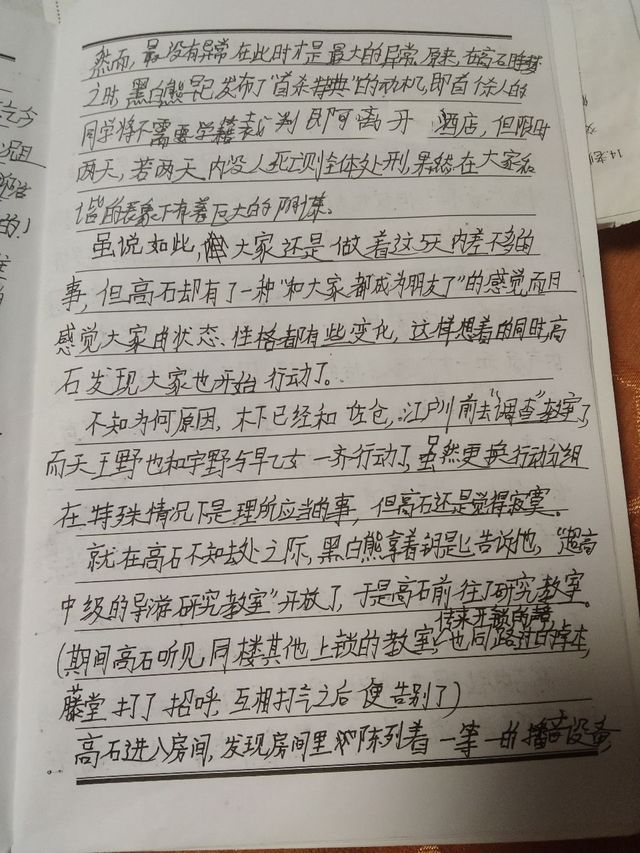 然而,最没有异常在此时才是最大的异常,原来,在高石睡梦
之时,黑白熊早已发布了“首杀特典”的动机,即首位杀人的
同学将不需要学籍裁判即可离开 酒店,但限时
两天,若两天内没人死亡则全体处刑,果然在大家和
谐的表象下有着巨大的阴谋。
虽说如此,大家还是做着这5天内差不多的
事,但高石却有了一种“和大家都成为朋友了”的感觉而且
感觉大家由状态、性格都有些变化,这样想着的同时,高
石发现大家也开始行动了。
不知为何原因,木下已经和佐仓,江户川前去“调查”教室了
而天王野也和宇野与早乙女一齐行动了,虽然更换行动分组
在特殊情况下是理所应当的事,但高石还是觉得寂寞。
就在高石不知去处之际,黑白熊拿着钥匙告诉他,“超高
中级的导游研究教室”开放了,于是高石前往了研究教室。
(期间高石听见同楼其他上锁的教室传来开锁的声,也同路过的
藤堂打了招呼,互相打气之后便告别了)
高石进入房间,发现房间里陈列着一等一的播音设备,
14.老